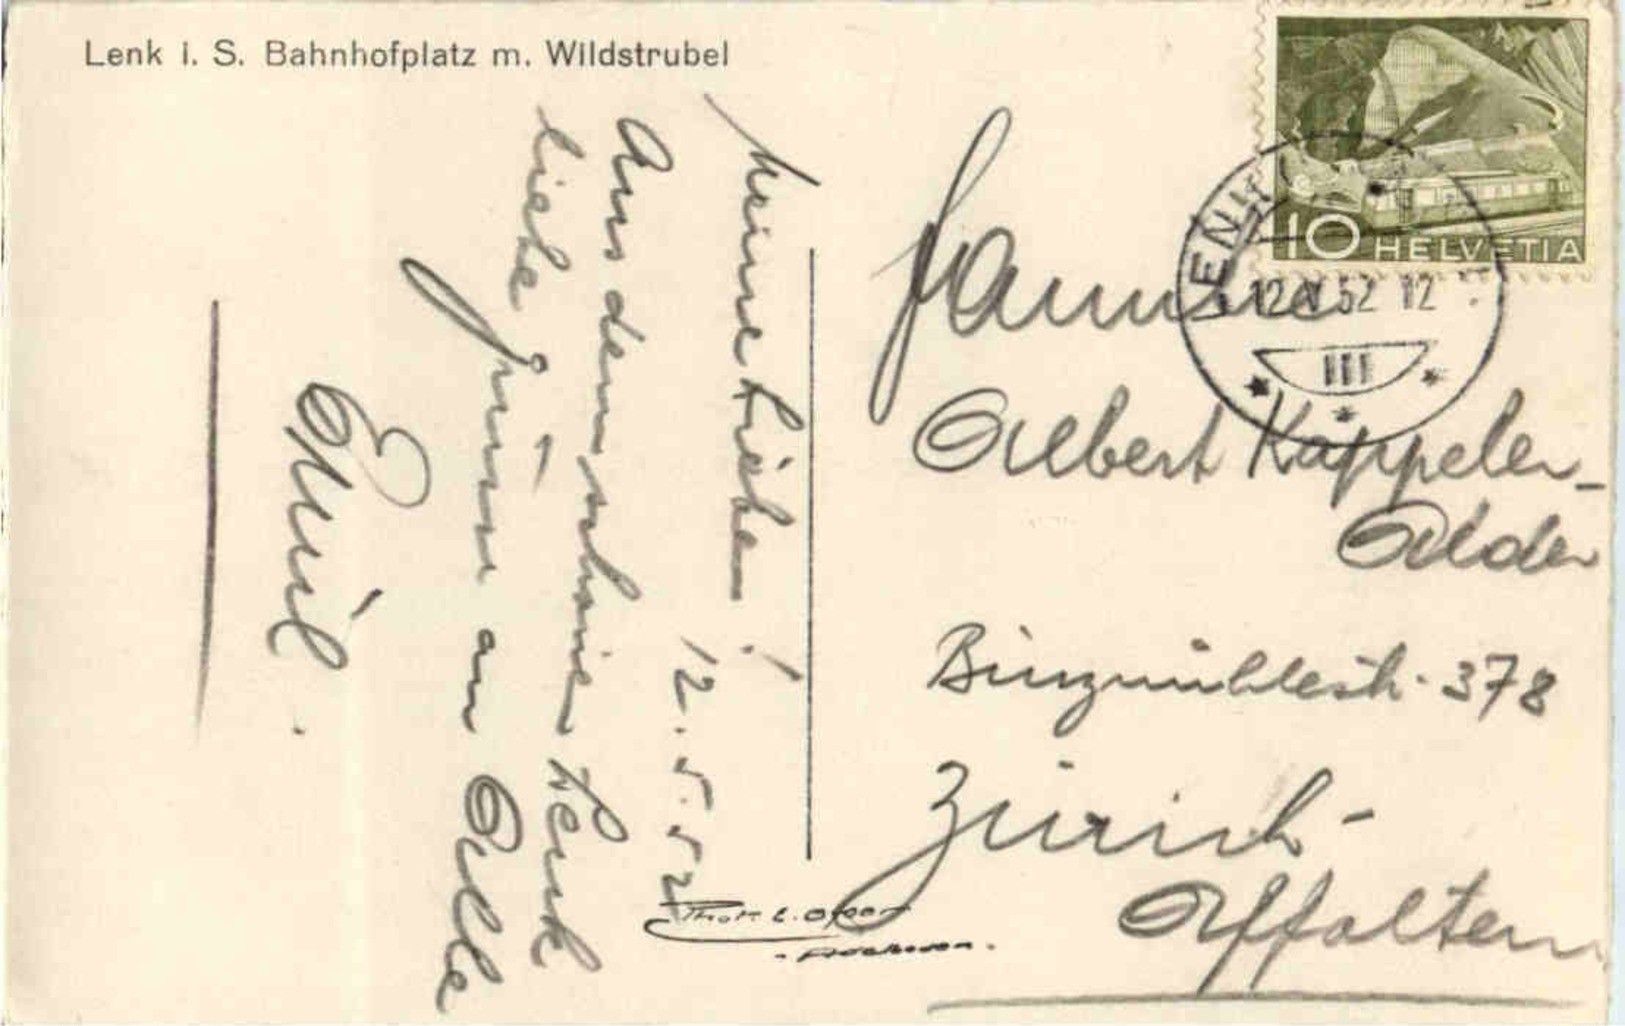 Lenk i. S. Bahnhofplatz m. Wildstrubel
10 HELVETIA
LENK
12.V.52 12
III
Meine Lieben!
12.5.52
Aus dem schönen Lenk
liebe Grüsse an Alle
Emil.
Familie
Albert Kappeler-
Alder
Binzmühlestr. 378
Zürich-
Affoltern
Phot. E. Gyger
Adelboden.